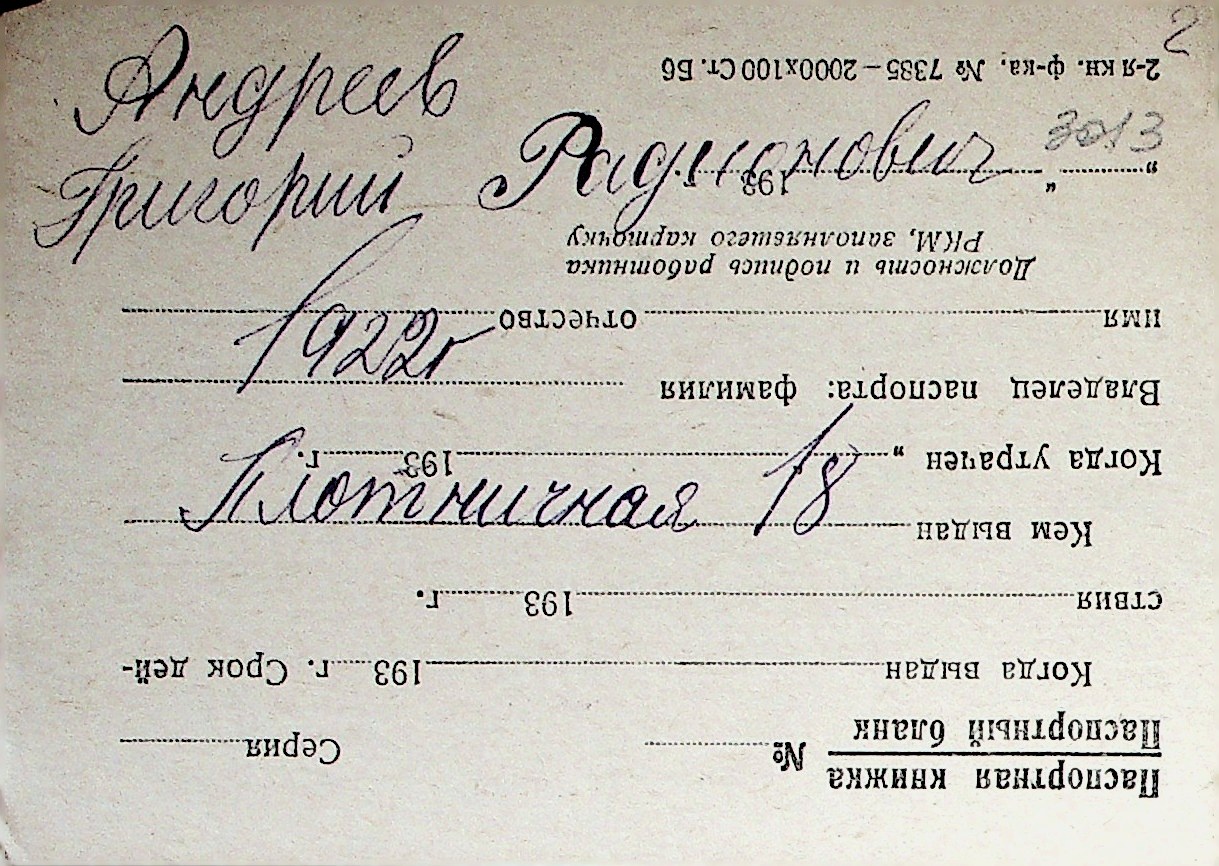 2
Андреев
Григорий Радионович 3013
1922г
Плотничная 18
Паспортная книжка
Паспортный бланк № Серия
Когда выдан 193 г. Срок дей-
ствия 193 г.
Кем выдан
Когда утрачен „ 193 г.
Владелец паспорта: фамилия
имя отчество
Должность и подпись работника
РКМ, заполняешего карточку
„ “ 193 г.
2-я кн. ф-ка, № 7385—2000х100 Ст. Б6